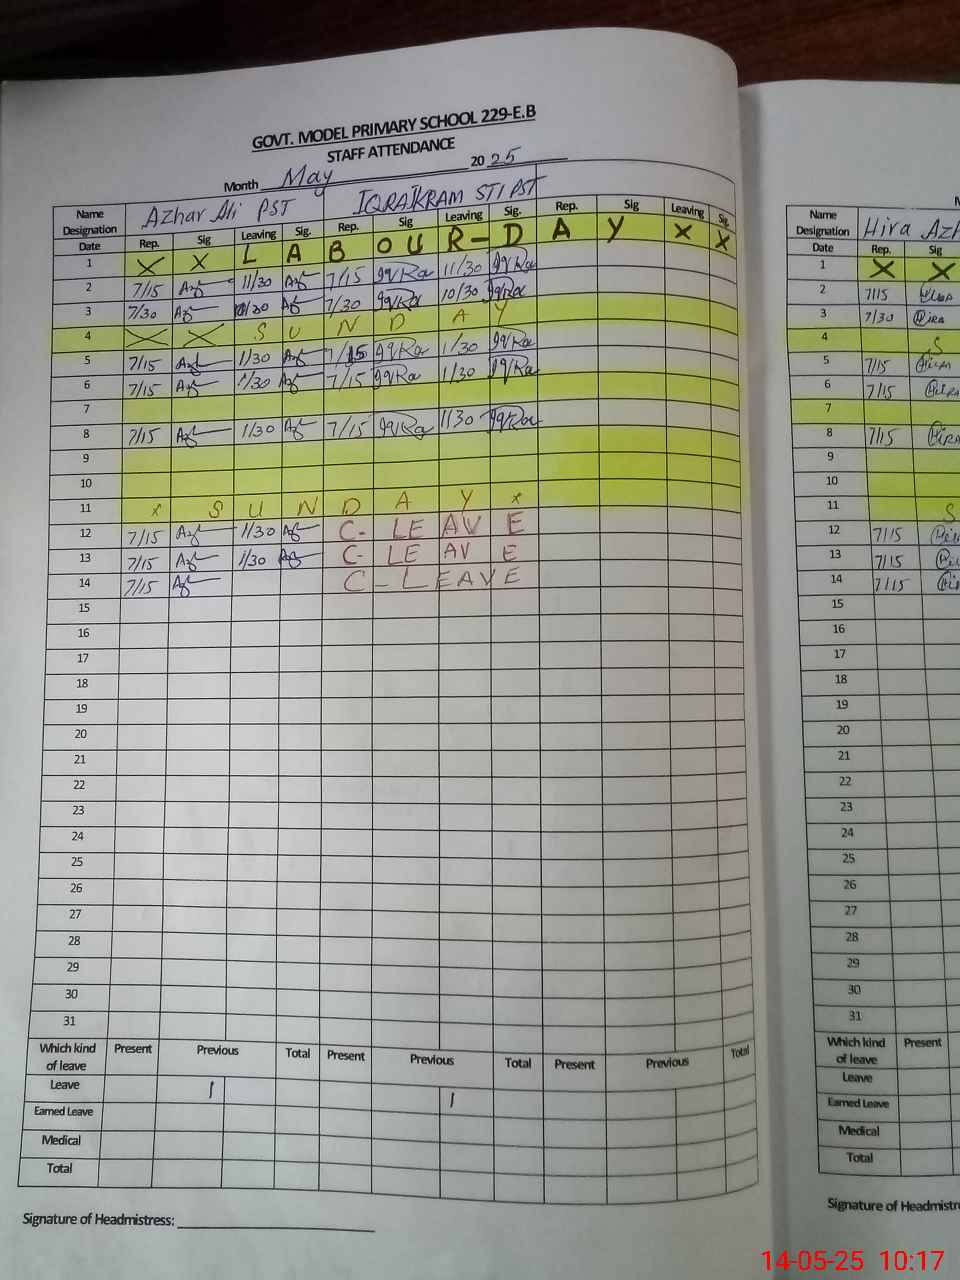 GOVT. MODEL PRIMARY SCHOOL 229-E.B
STAFF ATTENDANCE
Month May 2025
Name Designation Azhar Ali PST IQRA IKRAM STI PST
Date Rep. Sig Leaving Sig. Rep. Sig Leaving Sig. Rep. Sig Leaving Sig.
1 X X L A B O U R - D A Y X X
2 7/15 11/30 7/15 IqRa 11/30 IqRa
3 7/30 10/30 7/30 IqRa 10/30 IqRa
4 S U N D A Y
5 7/15 1/30 7/15 IqRa 1/30 IqRa
6 7/15 1/30 7/15 IqRa 1/30 IqRa
7
8 7/15 1/30 7/15 IqRa 1/30 IqRa
9
10
11 x S U N D A Y x
12 7/15 1/30 C- LEAVE
13 7/15 1/30 C- LEAVE
14 7/15 C-LEAVE
15
16
17
18
19
20
21
22
23
24
25
26
27
28
29
30
31
Which kind of leave Present Previous Total Present Previous Total Present Previous Total
Leave 1 1
Earned Leave
Medical
Total
Signature of Headmistress:
Name Designation Hira
Date Rep. Sig
1 X X
2 7/15
3 7/30 HIRA
4 S
5 7/15
6 7/15 HIRA
7
8 7/15 HIRA
9
10
11 S
12 7/15
13 7/15
14 7/15
15
16
17
18
19
20
21
22
23
24
25
26
27
28
29
30
31
Which kind of leave Present
Leave
Earned Leave
Medical
Total
Signature of
14-05-25 10:17